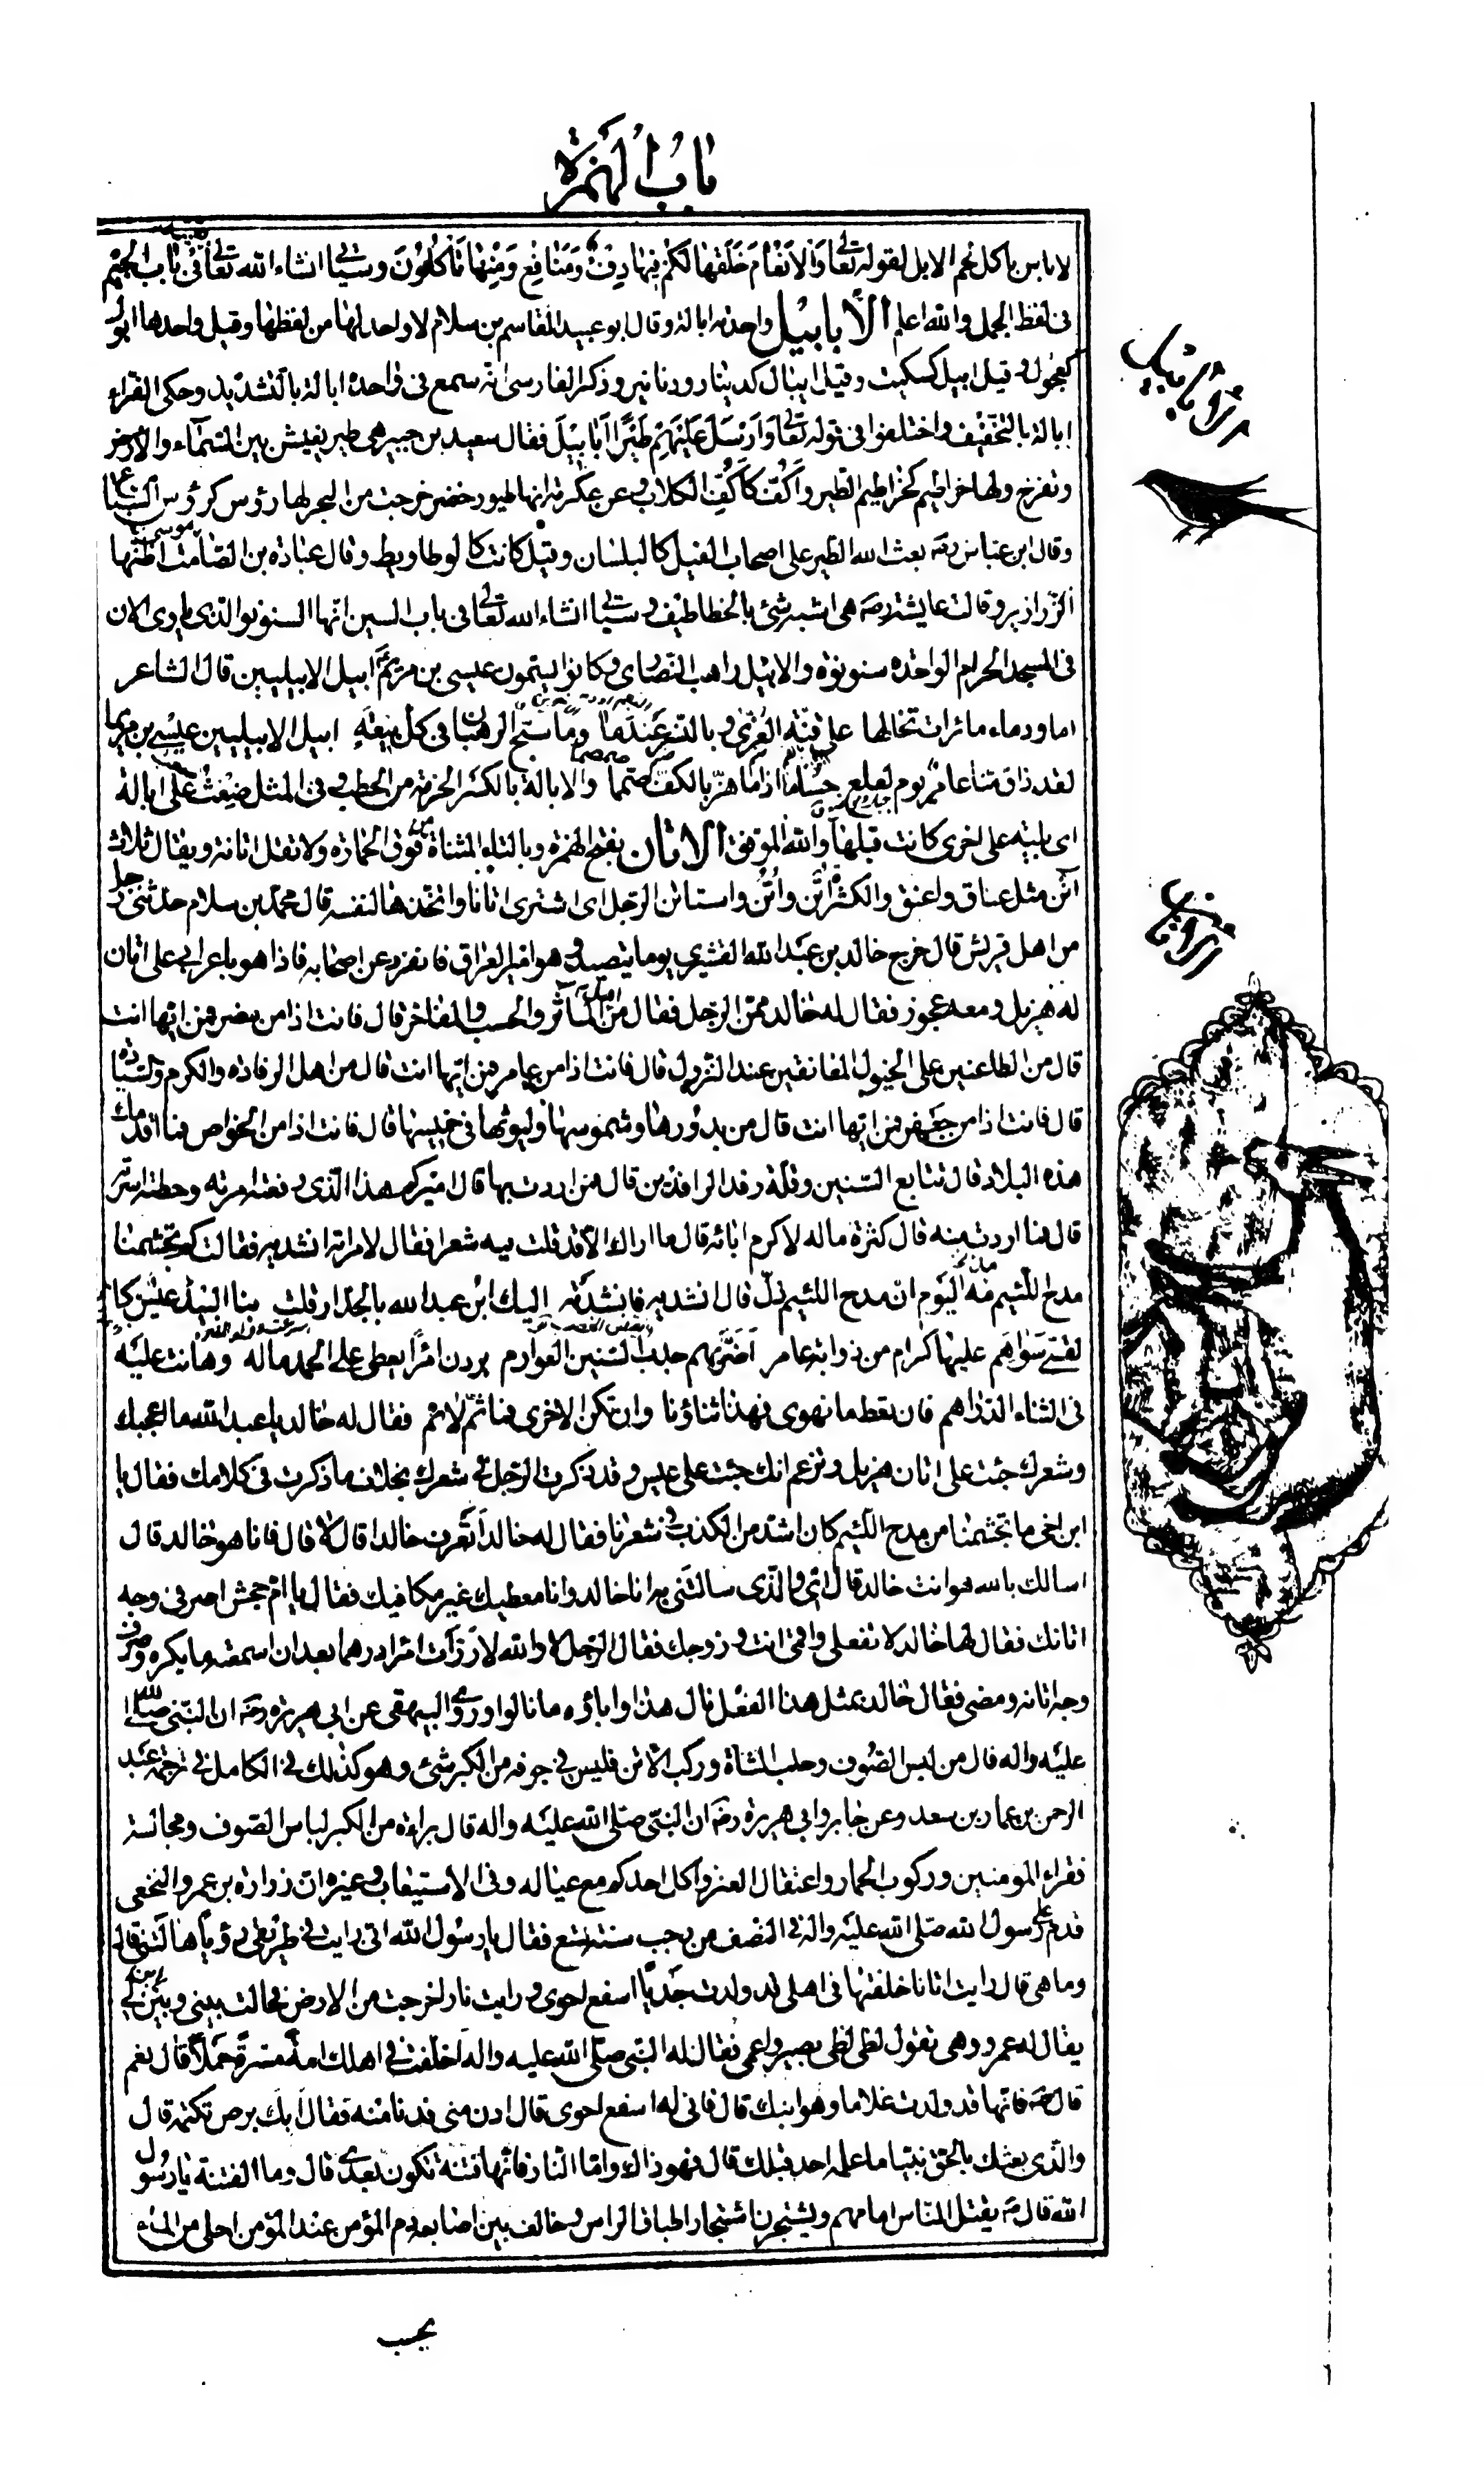 باب الهمزة
لا باس باكل لحم الابل لقوله تعالى وَالاَنْعَامَ خَلَقَهَا لَكُمْ فِيهَا دِفْءٌ وَمَنَافِعُ وَمِنْهَا تَأْكُلُونَ وسيأتي انشاء الله تعالى في باب الجيم
في لفظ الجمل والله اعلم الأبابيل واحدته ابالة وقال ابو عبيد القاسم بن سلام لا واحد لها من لفظها وقيل واحدها ابول
كعجول وقيل ابيل كسكيت وقيل ايبال كدينار ودنانير وذكر الفارسي انه سمع في واحده ابالة بالتشديد وحكى الفراء
ابالة بالتخفيف واختلفوا في قوله تعالى وَاَرْسَلَ عَلَيْهِمْ طَيْرًا اَبَابِيْلَ فقال سعيد بن جبير هي طير يعيش بين السماء والارض
وتفرخ ولها خراطيم كخراطيم الطير واَكُفّ كاَكُفّ الكلاب وعن عكرمة انها طيور خضر خرجت من البحر لها رؤس كرؤس السباع
وقال ابن عباس رضه بعث الله الطير على اصحاب الفيل كالبلسان وقيل كانت كالوطاويط وقال عبادة بن الصامت اظنها
الزرازير وقالت عايشة رضه هي اشبه شئ بالخطاطيف وسيأتي انشاء الله تعالى في باب السين انها السنونو الذي ياوى الان
في المسجد الحرام الواحدة سنونوة والابيل راهب النصارى وكانوا يسمون عيسى بن مريم ابيل الابيليين قال الشاعر
اما ودماء مائرات تخالها على قنة العزى وبالنسر عندما وما سبح الرهبان في كل بيعة ابيل الابيليين عيسى بن مريما
لقد ذاق منا عامر يوم لعلع حساما اذا ما هز بالكف صمما والابالة بالكسر الحزمة من الحطب وفي المثل ضغث على ابالة
اى بلية على اخرى كانت قبلها والله الموفق الأتان بفتح الهمزة وبالتاء المثناة من فوق الحمارة ولا تقل اتانة ويقال ثلاث
آتن مثل عناق واعنق والكثرة اتن واُتُن واستاتن الرجل اى اشترى اتانا واتخذها لنفسه قال محمد بن سلام حدثني رجل
من اهل قريش قال خرج خالد بن عبد الله القشيري يوما يتصيد وهو امير العراق فانفرد عن اصحابه فاذا هو باعرابي على اتان
له هزيل ومعه عجوز فقال له خالد ممن الرجل فقال من اهل المآثر والحسب والمفاخر قال فانت اذا من مضر فمن ايها انت
قال من الطاعنين على الخيول المعانقين عند النزول قال فانت اذا من عامر فمن ايها انت قال من اهل الرفادة والكرم والسيادة
قال فانت اذا من جعفر فمن ايها انت قال من بدورها وشموسها وليوثها في خيسها قال فانت اذا من الخواص فما اقدمك
هذه البلاد قال تتابع السنين وقلة رفد الرافدين قال فمن اردت بها قال اميركم هذا الذى رفعته امرته وحطته اسرته
قال فما اردت منه قال كثرة ماله لا كرم ابائه قال ما اراك الا قد قلت فيه شعرا فقال لامراته انشديه فقالت كم تجشمنا
مدح اللئيم مه اليوم ان مدح اللئيم ذل قال انشديه فانشدته اليك ابن عبد الله بالجد ارقلت بنا البيد عيس كا
لقسى سواهم عليها كرام من ذوابة عامر اضر بهم جدب السنين العوارم يردن امرأ يعطى على الحمد ماله وهانت عليه
في الثناء الدراهم فان تعط ما نهوى فهذا ثناؤنا وان تكن الاخرى فما ثم لائم فقال له خالد يا عبد الله ما اعجبك
وشعرك جئت على اتان هزيل وتزعم انك جئت على عيس وقد ذكرت الرجل في شعرك بخلاف ما ذكرت في كلامك فقال يا
ابن اخى ما تجشمنا من مدح اللئيم كان اشد من الكذب في شعرنا فقال له خالد اتعرف خالدا قال لا قال فانا هو خالد قال
اسالك بالله هو انت خالد قال اى والذى سالتنى به انا خالد وانا معطيك غير مكافيك فقال يا ام جحش اصرفى وجه
اتانك فقال لها خالد لا تفعلى واقمى انت وزوجك فقال الرجل لا والله لا رزأت امرأ درهما بعد ان اسمعته ما يكره وصرف
وجه اتانه ومضى فقال خالد بمثل هذا الفعل نال هذا واباؤه ما نالوا وروى البيهقى عن ابى هريرة رضه ان النبى صلى الله
عليه واله قال من لبس الصوف وحلب الشاة وركب الاتن فليس في جوفه من الكبر شئ وهو كذلك في الكامل في ترجمة عبد
الرحمن بن عمار بن سعد وعن جابر وابى هريرة رضه ان النبى صلى الله عليه واله قال براءة من الكبر لباس الصوف ومجالسة
فقراء المومنين وركوب الحمار واعتقال العنز واكل احدكم مع عياله وفى الاستيعاب وغيره ان زرارة بن عمرو النخعى
قدم على رسول الله صلى الله عليه واله في النصف من رجب سنة تسع فقال يا رسول الله انى رايت في طريقى رؤيا هالتنى قال
وما هى قال رايت اتانا خلفتها في اهلى قد ولدت جديا اسفع احوى ورايت نارا خرجت من الارض فحالت بينى وبين ابن لى
يقال له عمرو وهى تقول لظى لظى بصير واعمى فقال له النبى صلى الله عليه واله اخلفت في اهلك امة مسرة حملا قال نعم
قال صه فانها قد ولدت غلاما وهو ابنك قال فانى له اسفع احوى قال ادن منى فدنا منه فقال ابك برص تكتمه قال
والذى بعثك بالحق نبيا ما علمه احد قبلك قال فهو ذاك واما النار فانها فتنة تكون بعدى قال وما الفتنة يا رسول
الله قال صه يقتل الناس امامهم ويشتجرن اشتجار اطباق الراس وخالف بين اصابعه دم المؤمن عند المؤمن احلى من الماء
يحب
الأبابيل
الأتان